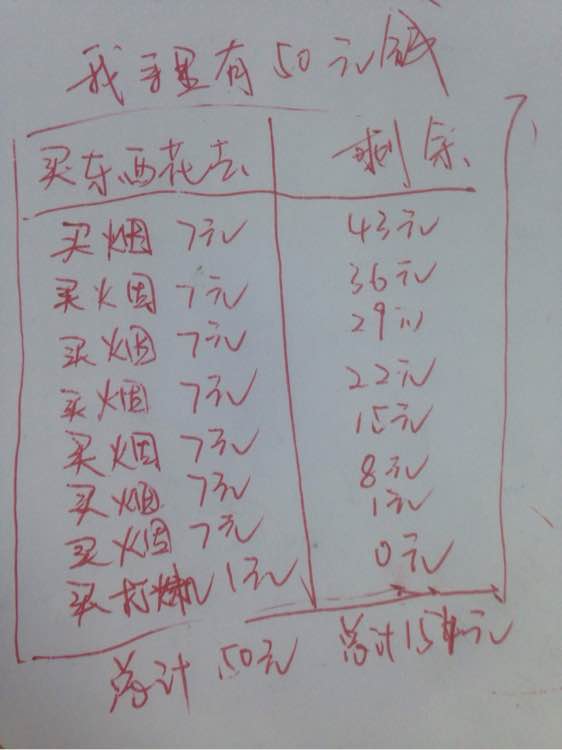 我手里有50元钱
买东西花去 剩余
买烟 7元 43元
买烟 7元 36元
买烟 7元 29元
买烟 7元 22元
买烟 7元 15元
买烟 7元 8元
买烟 7元 1元
买打火机 1元 0元
总计 50元 总计154元